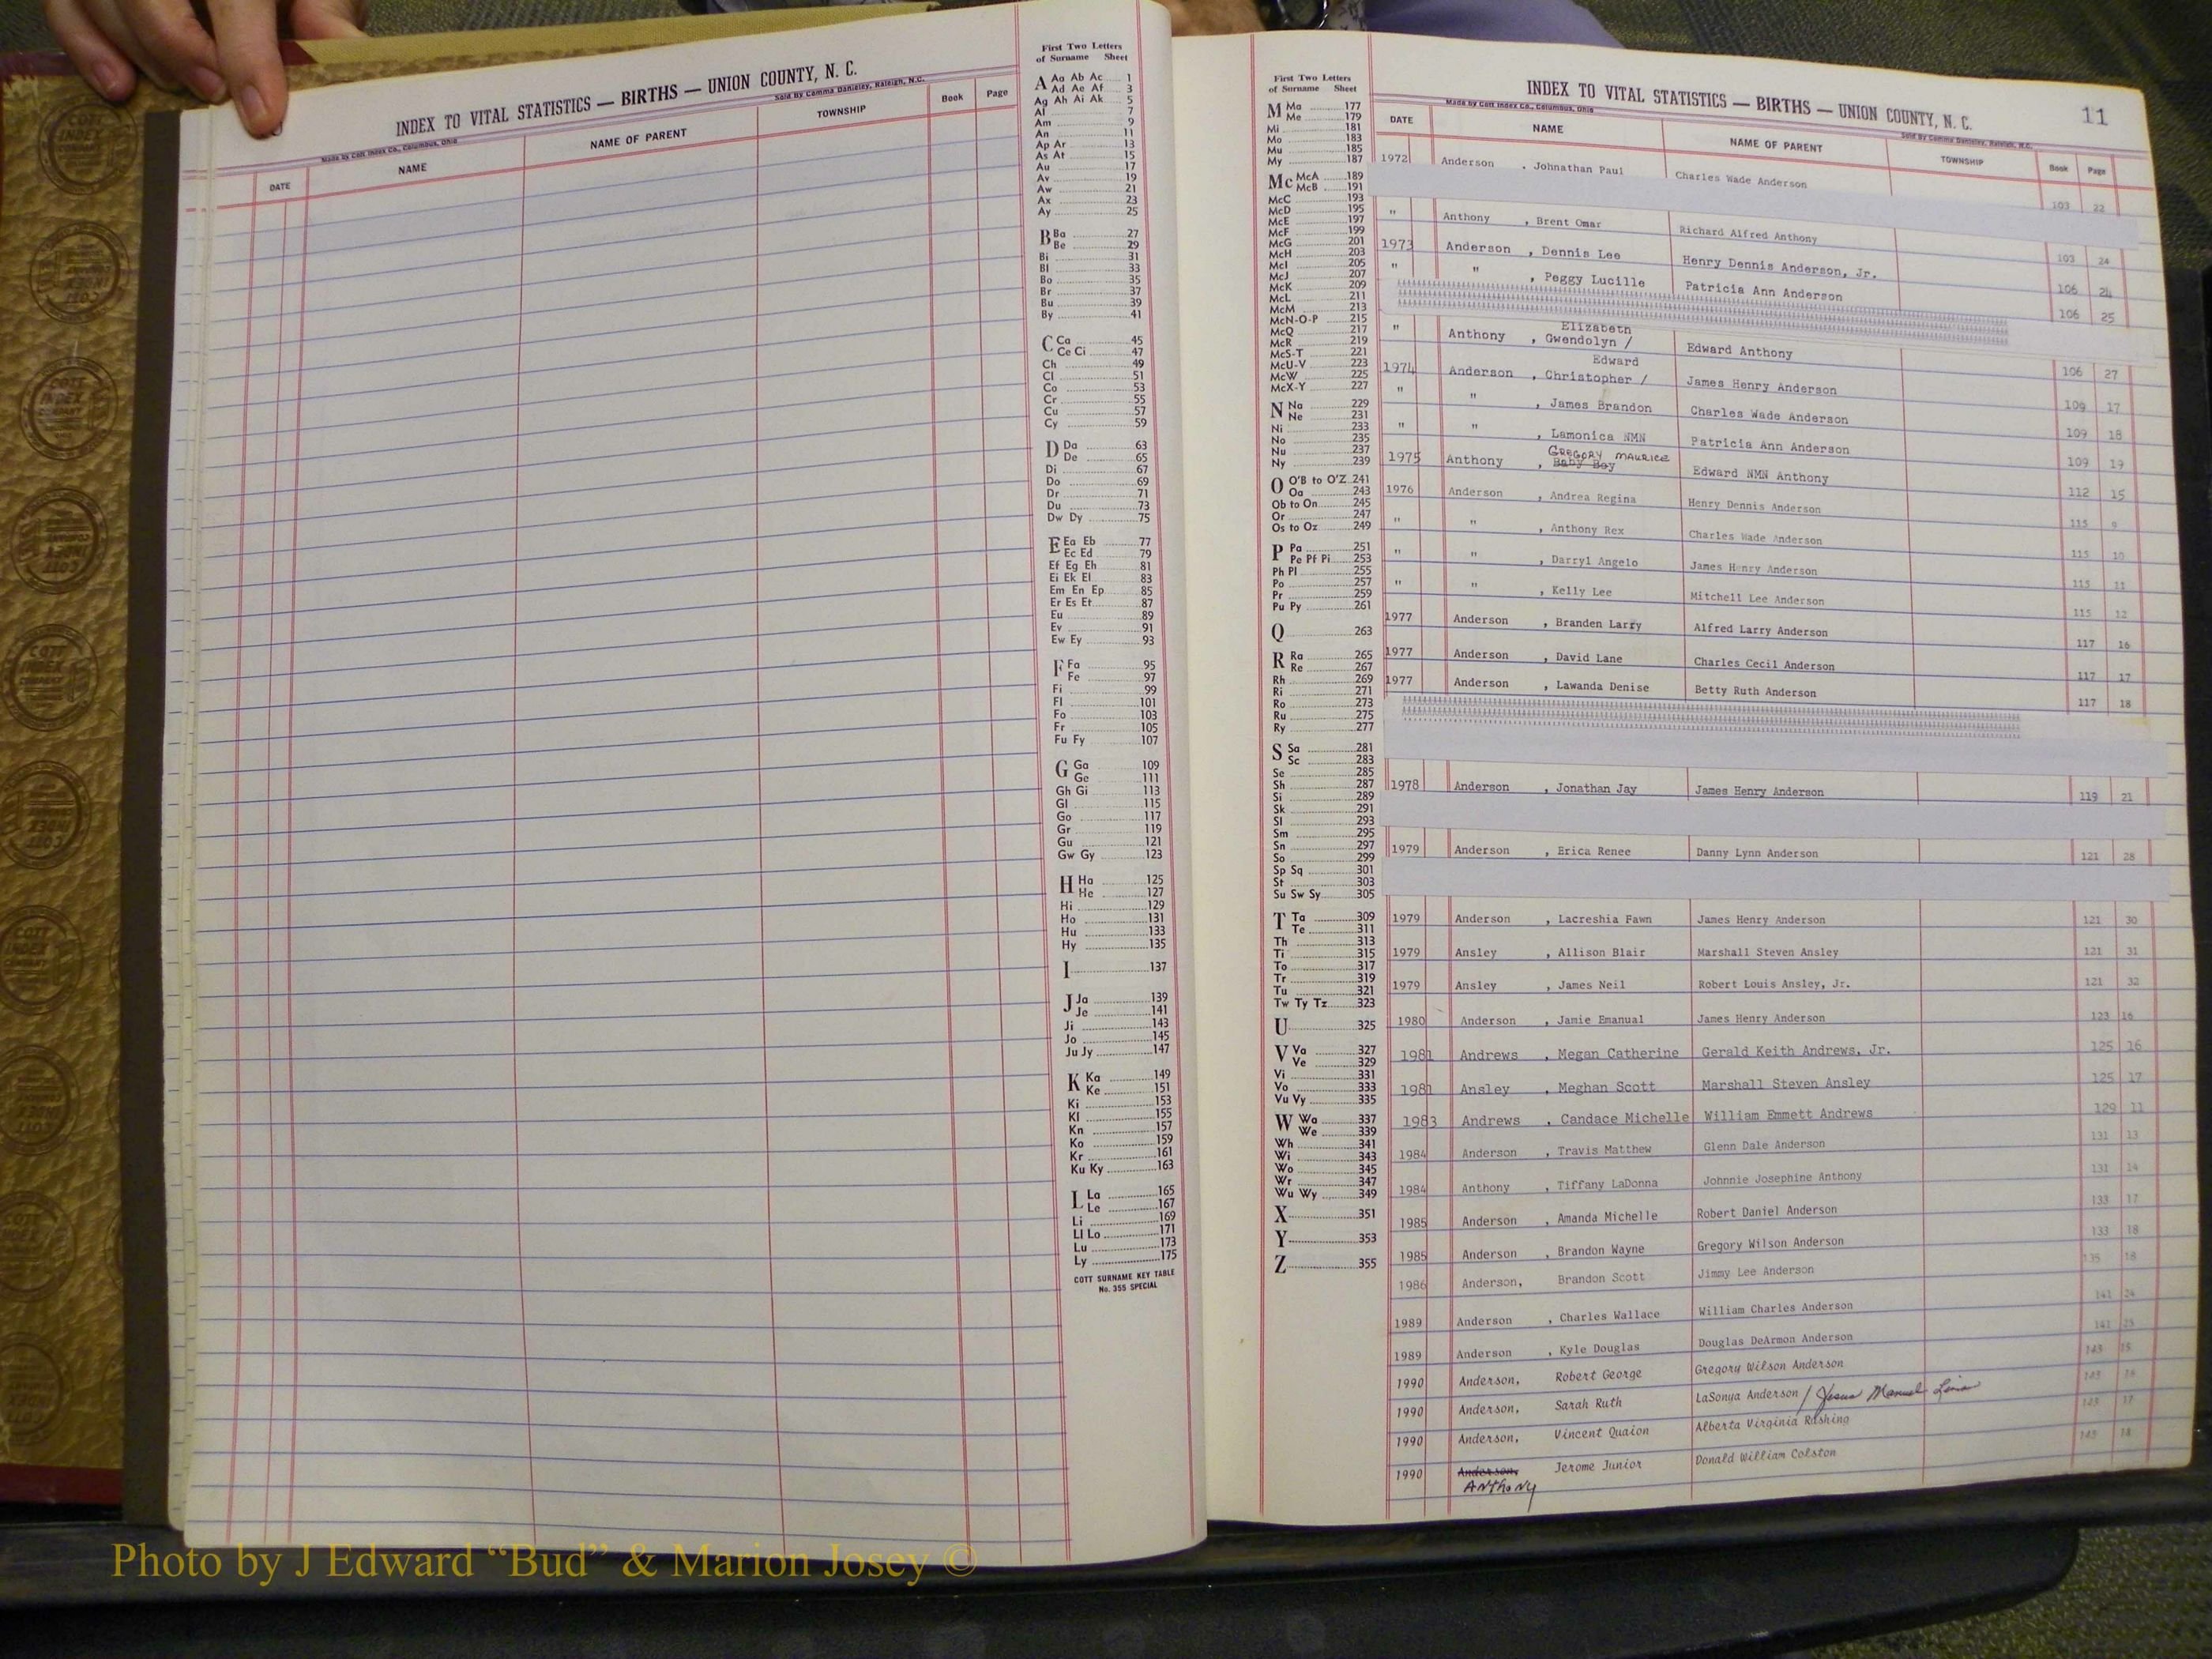 INDEX TO VITAL STATISTICS — BIRTHS — UNION COUNTY, N. C.
Made by Cott Index Co., Columbus, Ohio
Sold By Comma Danieley, Raleigh, N.C.
DATE NAME NAME OF PARENT TOWNSHIP Book Page
First Two Letters
of Surname Sheet
A Aa Ab Ac 1
Ad Ae Af 3
Ag Ah Ai Ak 5
Al 7
Am 9
An 11
Ap Ar 13
As At 15
Au 17
Av 19
Aw 21
Ax 23
Ay 25
B Ba 27
Be 29
Bi 31
Bl 33
Bo 35
Br 37
Bu 39
By 41
C Ca 45
Ce Ci 47
Ch 49
Cl 51
Co 53
Cr 55
Cu 57
Cy 59
D Da 63
De 65
Di 67
Do 69
Dr 71
Du 73
Dw Dy 75
E Ea Eb 77
Ec Ed 79
Ef Eg Eh 81
Ei Ek El 83
Em En Ep 85
Er Es Et 87
Eu 89
Ev 91
Ew Ey 93
F Fa 95
Fe 97
Fi 99
Fl 101
Fo 103
Fr 105
Fu Fy 107
G Ga 109
Ge 111
Gh Gi 113
Gl 115
Go 117
Gr 119
Gu 121
Gw Gy 123
H Ha 125
He 127
Hi 129
Ho 131
Hu 133
Hy 135
I 137
J Ja 139
Je 141
Ji 143
Jo 145
Ju Jy 147
K Ka 149
Ke 151
Ki 153
Kl 155
Kn 157
Ko 159
Kr 161
Ku Ky 163
L La 165
Le 167
Li 169
Ll Lo 171
Lu 173
Ly 175
COTT SURNAME KEY TABLE
No. 355 SPECIAL
First Two Letters
of Surname Sheet
M Ma 177
Me 179
Mi 181
Mo 183
Mu 185
My 187
Mc McA 189
McB 191
McC 193
McD 195
McE 197
McF 199
McG 201
McH 203
McI 205
McJ 207
McK 209
McL 211
McM 213
McN-O-P 215
McQ 217
McR 219
McS-T 221
McU-V 223
McW 225
McX-Y 227
N Na 229
Ne 231
Ni 233
No 235
Nu 237
Ny 239
O O'B to O'Z 241
Oa 243
Ob to On 245
Or 247
Os to Oz 249
P Pa 251
Pe Pf Pi 253
Ph Pl 255
Po 257
Pr 259
Pu Py 261
Q 263
R Ra 265
Re 267
Rh 269
Ri 271
Ro 273
Ru 275
Ry 277
S Sa 281
Sc 283
Se 285
Sh 287
Si 289
Sk 291
Sl 293
Sm 295
Sn 297
So 299
Sp Sq 301
St 303
Su Sw Sy 305
T Ta 309
Te 311
Th 313
Ti 315
To 317
Tr 319
Tu 321
Tw Ty Tz 323
U 325
V Va 327
Ve 329
Vi 331
Vo 333
Vu Vy 335
W Wa 337
We 339
Wh 341
Wi 343
Wo 345
Wr 347
Wu Wy 349
X 351
Y 353
Z 355
INDEX TO VITAL STATISTICS — BIRTHS — UNION COUNTY, N. C. 11
Made by Cott Index Co., Columbus, Ohio
Sold By Comma Danieley, Raleigh, N.C.
DATE NAME NAME OF PARENT TOWNSHIP Book Page
1972 Anderson , Johnathan Paul Charles Wade Anderson 103 22
" Anthony , Brent Omar Richard Alfred Anthony 103 24
1973 Anderson , Dennis Lee Henry Dennis Anderson, Jr. 106 24
" " , Peggy Lucille Patricia Ann Anderson 106 25
Elizabeth
" Anthony , Gwendolyn / Edward Anthony 106 27
Edward
1974 Anderson , Christopher / James Henry Anderson 109 17
" " , James Brandon Charles Wade Anderson 109 18
" " , Lamonica NMN Patricia Ann Anderson 109 19
GREGORY MAURICE
1975 Anthony , Baby Boy Edward NMN Anthony 112 15
1976 Anderson , Andrea Regina Henry Dennis Anderson 115 9
" " , Anthony Rex Charles Wade Anderson 115 10
" " , Darryl Angelo James Henry Anderson 115 11
" " , Kelly Lee Mitchell Lee Anderson 115 12
1977 Anderson , Branden Larry Alfred Larry Anderson 117 16
1977 Anderson , David Lane Charles Cecil Anderson 117 17
1977 Anderson , Lawanda Denise Betty Ruth Anderson 117 18
1978 Anderson , Jonathan Jay James Henry Anderson 119 21
1979 Anderson , Erica Renee Danny Lynn Anderson 121 28
1979 Anderson , Lacreshia Fawn James Henry Anderson 121 30
1979 Ansley , Allison Blair Marshall Steven Ansley 121 31
1979 Ansley , James Neil Robert Louis Ansley, Jr. 121 32
1980 Anderson , Jamie Emanual James Henry Anderson 123 16
1981 Andrews , Megan Catherine Gerald Keith Andrews, Jr. 125 16
1981 Ansley , Meghan Scott Marshall Steven Ansley 125 17
1983 Andrews , Candace Michelle William Emmett Andrews 129 11
1984 Anderson , Travis Matthew Glenn Dale Anderson 131 13
1984 Anthony , Tiffany LaDonna Johnnie Josephine Anthony 131 14
1985 Anderson , Amanda Michelle Robert Daniel Anderson 133 17
1985 Anderson , Brandon Wayne Gregory Wilson Anderson 133 18
1986 Anderson, Brandon Scott Jimmy Lee Anderson 135 18
1989 Anderson , Charles Wallace William Charles Anderson 141 24
1989 Anderson , Kyle Douglas Douglas DeArmon Anderson 141 25
1990 Anderson, Robert George Gregory Wilson Anderson 143 15
1990 Anderson, Sarah Ruth LaSonya Anderson / Jesus Manuel 143 16
1990 Anderson, Vincent Quaion Alberta Virginia Rushing 143 17
1990 Anderson, Jerome Junior Donald William Colston 143 18
ANTHONY
Photo by J Edward “Bud” & Marion Josey ©